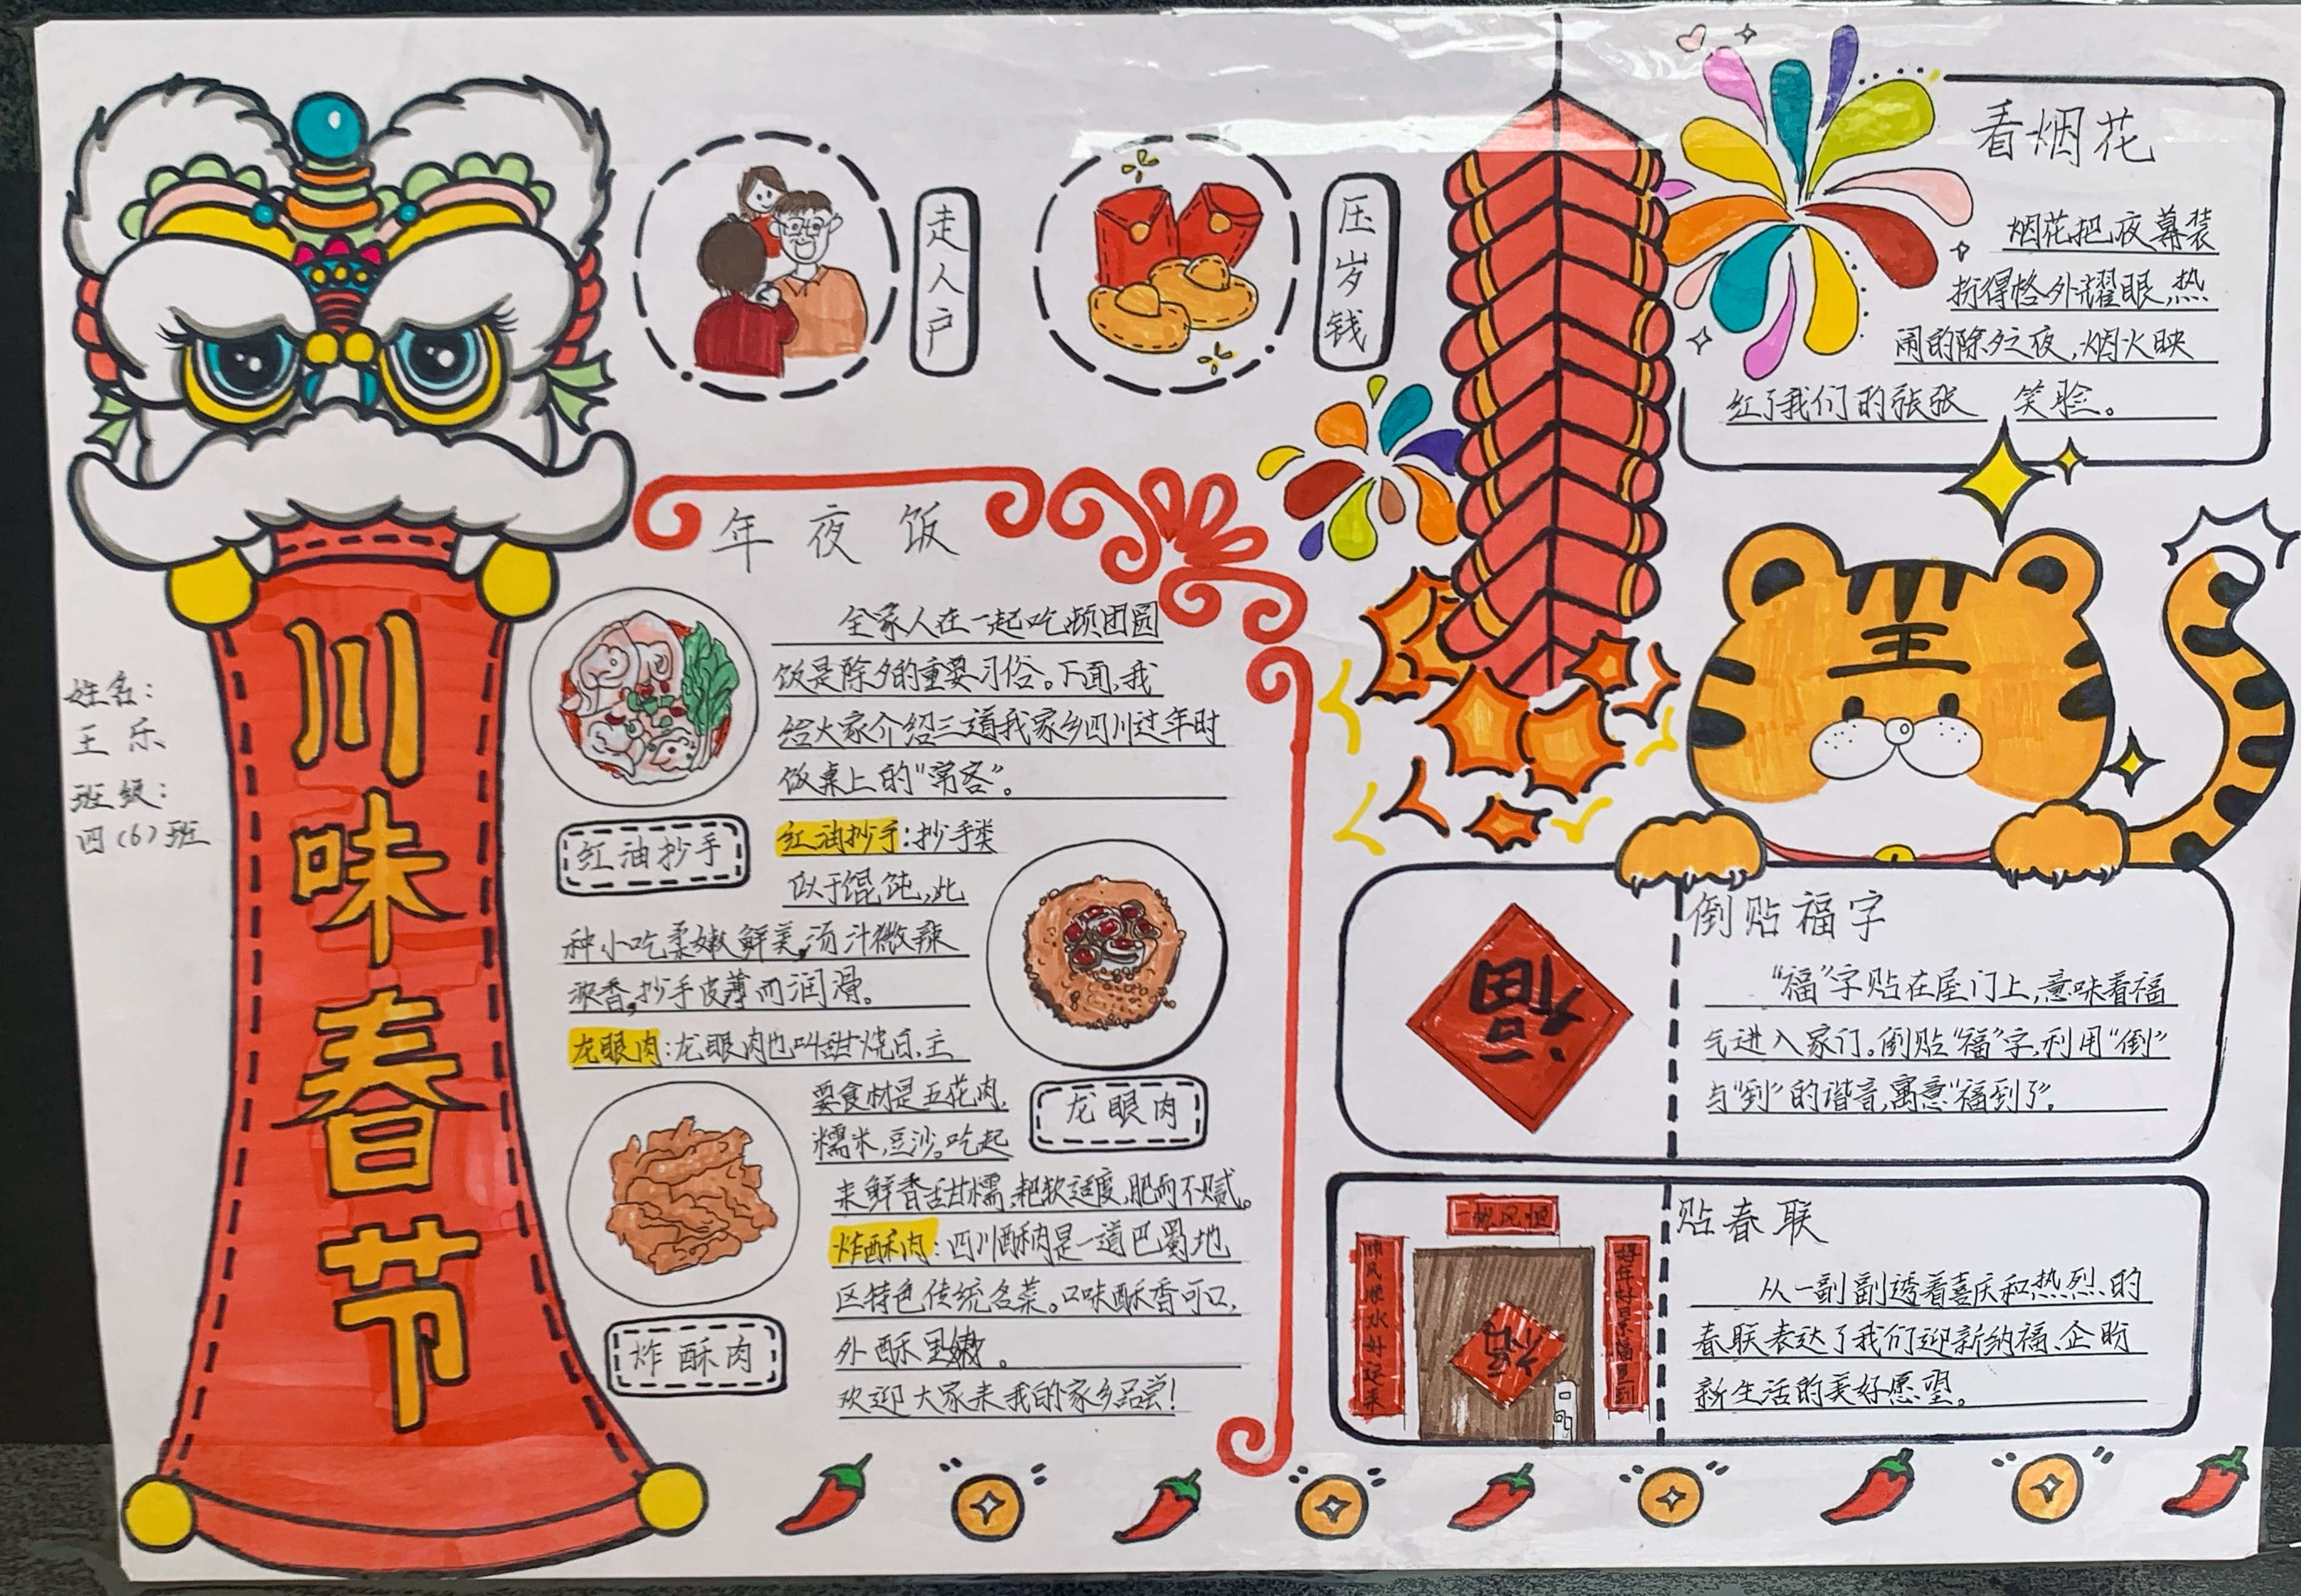 川味春节
姓名：
王乐
班级：
四（6）班
走人户
压岁钱
看烟花
烟花把夜幕装
折得格外耀眼，热
闹的除夕之夜，烟火映
红了我们的张张 笑脸。
年夜饭
全家人在一起吃顿团圆
饭是除夕的重要习俗。下面，我
给大家介绍三道我家乡四川过年时
饭桌上的“常客”。
红油抄手
红油抄手：抄手类
似于馄饨，此
种小吃柔嫩鲜美，汤汁微辣
浓香，抄手皮薄而润滑。
龙眼肉：龙眼肉也叫甜烧白，主
要食材是五花肉，
糯米，豆沙。吃起
来鲜香甜糯，耙软适度，肥而不腻。
龙眼肉
炸酥肉：四川酥肉是一道巴蜀地
区特色传统名菜。口味酥香可口，
外酥里嫩。
欢迎大家来我的家乡品尝！
炸酥肉
王
福
倒贴福字
“福”字贴在屋门上，意味着福
气进入家门。倒贴“福”字，利用“倒”
与“到”的谐音，寓意“福到了”。
贴春联
从一副副透着喜庆和热烈的
春联表达了我们迎新纳福、企盼
新生活的美好愿望。
一帆风恒
顺风顺水好运来
好年好景福星到
福